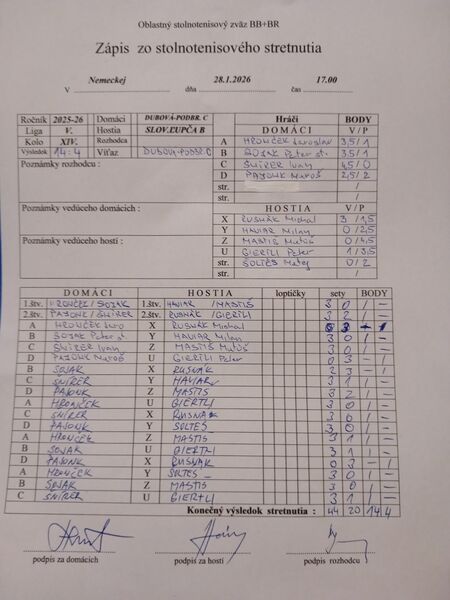 Oblastný stolnotenisový zväz BB+BR
Zápis zo stolnotenisového stretnutia
V Nemeckej dňa 28.1.2026 čas 17.00
Ročník 2025-26 Domáci DUBOVÁ-PODBR. C
Liga V. Hostia SLOV.ĽUPČA B
Kolo XIV. Rozhodca
Výsledok 14:4 Víťaz DUBOVÁ-PODBR C
Hráči BODY
DOMÁCI V/P
A HRONČEK Jaroslav 3,5/1
B SOJAK Peter st. 3,5/1
C ŠNÍRER Ivan 4,5/0
D PAJONK Maroš 2,5/2
str. /
str. /
Poznámky rozhodcu :
Poznámky vedúceho domácich :
Poznámky vedúceho hostí :
HOSTIA V/P
X RUSNÁK Michal 3/1,5
Y HAVIAR Milan 0/2,5
Z MASTIŠ Matúš 0/4,5
U GIERTLI Peter 1/3,5
str. ŠOLTÉS Matej 0/2
str. /
DOMÁCI HOSTIA loptičky sety BODY
1.štv. HRONČEK/SOJAK 1.štv. HAVIAR/MASTIŠ 3 0 1 -
2.štv. PAJONK/ŠNÍRER 2.štv. RUSNÁK/GIERTLI 3 2 1 -
A HRONČEK Jaro X RUSNÁK Michal 3 - 1
B SOJAK Peter st Y HAVIAR Milan 3 0 1 -
C ŠNÍRER Ivan Z MASTIŠ Matúš 3 0 1 -
D PAJONK Maroš U GIERTLI Peter 0 3 - 1
B SOJAK X RUSNÁK 2 3 - 1
C ŠNÍRER Y HAVIAR 3 1 1 -
D PAJONK Z MASTIŠ 3 2 1 -
A HRONČEK U GIERTLI 3 0 1 -
C ŠNÍRER X RUSNAK 3 0 1 -
D PAJONK Y SOLTES 3 0 1 -
A HRONČEK Z MASTIS 3 1 1 -
B SOJAK U GIERTLI 3 1 1 -
D PAJONK X RUSNAK 0 3 - 1
A HRONČEK Y SOLTES 3 0 1 -
B SOJAK Z MASTIS 3 0 1 -
C ŠNÍRER U GIERTLI 3 1 1 -
Konečný výsledok stretnutia : 44 20 14 4
podpis za domácich podpis za hostí podpis rozhodcu